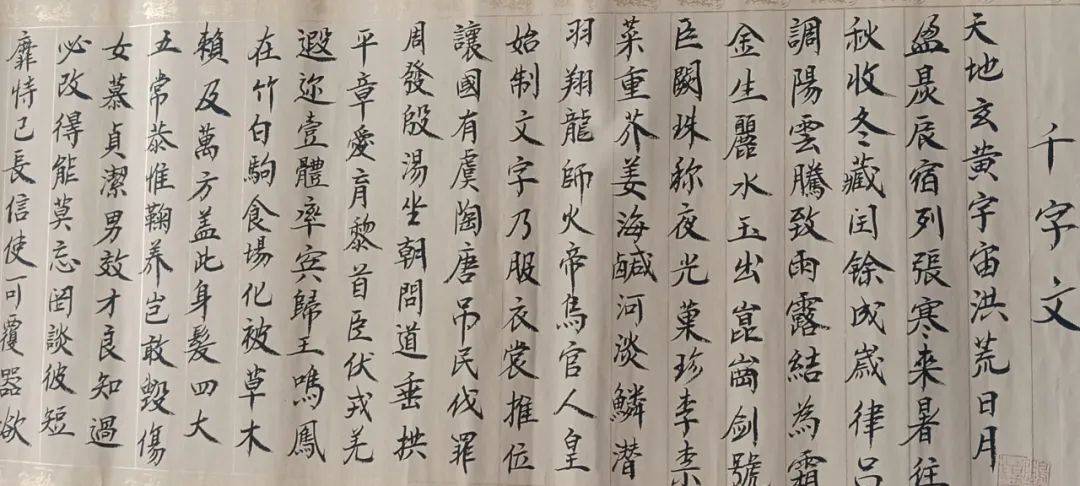 千字文
天地玄黃宇宙洪荒日月
盈昃辰宿列張寒来暑往
秋收冬藏闰馀成歲律吕
調陽雲騰致雨露結為霜
金生麗水玉出崑崗劍號
巨闕珠称夜光菓珍李柰
菜重芥姜海鹹河淡鱗潛
羽翔龍師火帝鳥官人皇
始制文字乃服衣裳推位
讓國有虞陶唐吊民伐罪
周發殷湯坐朝問道垂拱
平章愛育黎首臣伏戎羌
遐迩壹體率宾歸王鳴鳳
在竹白駒食場化被草木
賴及萬方盖此身髮四大
五常恭惟鞠养岂敢毀傷
女慕貞潔男效才良知過
必改得能莫忘罔談彼短
靡恃己長信使可覆器欲